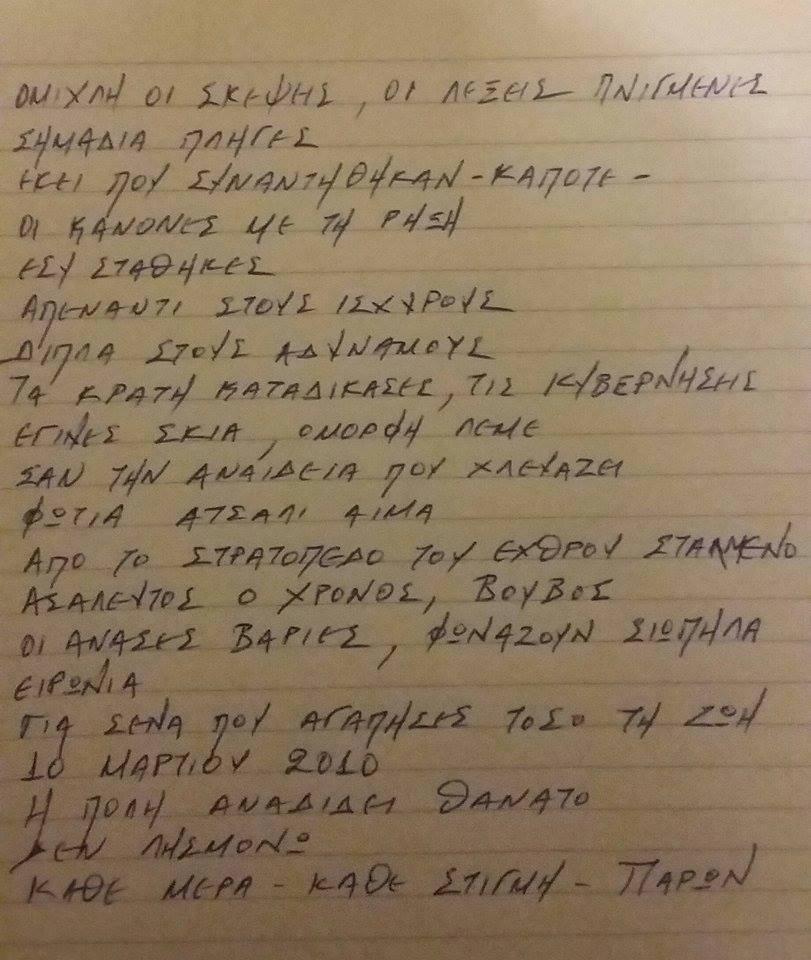 ΟΜΙΧΛΗ ΟΙ ΣΚΕΨΗΣ, ΟΙ ΛΕΞΕΙΣ ΠΝΙΓΜΕΝΕΣ
ΣΗΜΑΔΙΑ ΠΛΗΓΕΣ
ΕΚΕΙ ΠΟΥ ΣΥΝΑΝΤΗΘΗΚΑΝ - ΚΑΠΟΤΕ -
ΟΙ ΚΑΝΟΝΕΣ ΜΕ ΤΗ ΡΗΞΗ
ΕΣΥ ΣΤΑΘΗΚΕΣ
ΑΠΕΝΑΝΤΙ ΣΤΟΥΣ ΙΣΧΥΡΟΥΣ
ΔΙΠΛΑ ΣΤΟΥΣ ΑΔΥΝΑΜΟΥΣ
ΤΑ ΚΡΑΤΗ ΚΑΤΑΔΙΚΑΣΕΣ, ΤΙΣ ΚΥΒΕΡΝΗΣΗΣ
ΕΓΙΝΕΣ ΣΚΙΑ, ΟΜΟΡΦΗ ΛΕΜΕ
ΣΑΝ ΤΗΝ ΑΝΑΙΔΕΙΑ ΠΟΥ ΧΛΕΥΑΖΕΙ
ΦΩΤΙΑ ΑΤΣΑΛΙ ΑΙΜΑ
ΑΠΟ ΤΟ ΣΤΡΑΤΟΠΕΔΟ ΤΟΥ ΕΧΘΡΟΥ ΣΤΑΛΜΕΝΟ
ΑΣΑΛΕΥΤΟΣ Ο ΧΡΟΝΟΣ, ΒΟΥΒΟΣ
ΟΙ ΑΝΑΣΕΣ ΒΑΡΙΕΣ, ΦΩΝΑΖΟΥΝ ΣΙΩΠΗΛΑ
ΕΙΡΩΝΙΑ
ΓΙΑ ΣΕΝΑ ΠΟΥ ΑΓΑΠΗΣΕΣ ΤΟΣΟ ΤΗ ΖΩΗ
10 ΜΑΡΤΙΟΥ 2010
Η ΠΟΛΗ ΑΝΑΔΙΔΕΙ ΘΑΝΑΤΟ
ΔΕΝ ΛΗΣΜΟΝΩ
ΚΑΘΕ ΜΕΡΑ - ΚΑΘΕ ΣΤΙΓΜΗ - ΠΑΡΩΝ